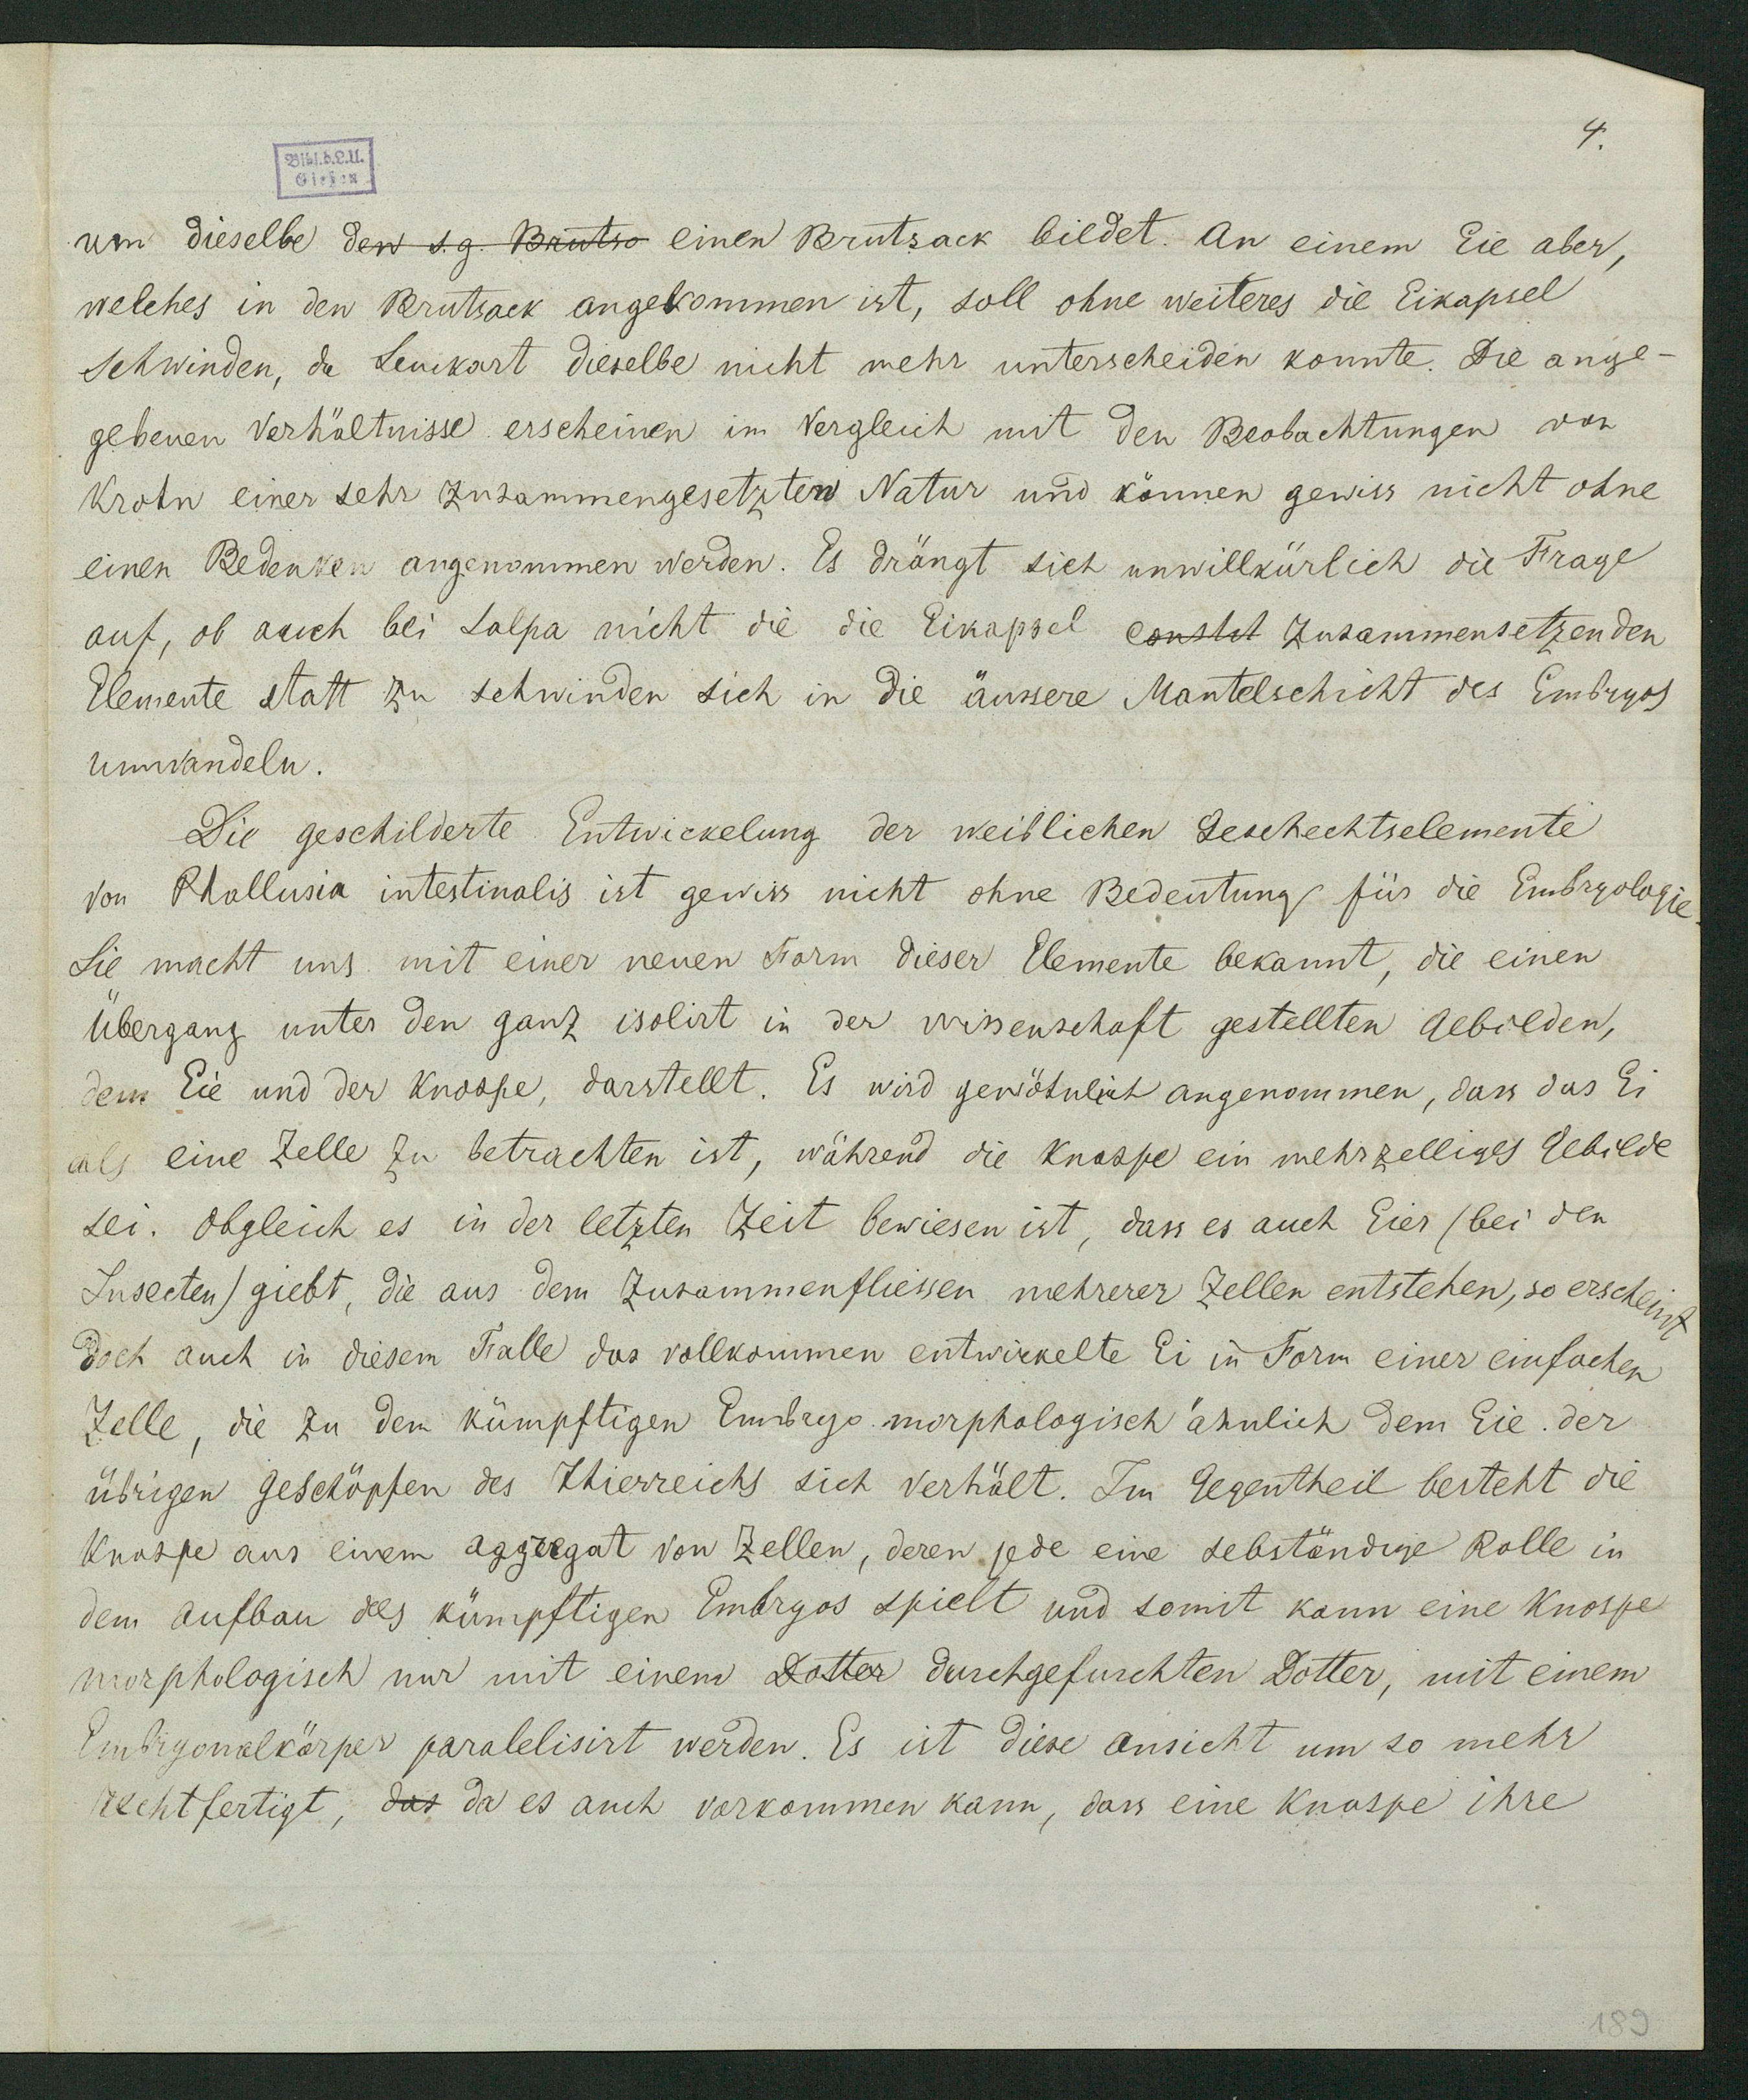 4.
Bibl.d.L.U.
Gießen
um dieselbe den s.g. Brutsa einen Brutsack bildet. An einem Eie aber,
welches in den Brutsack angekommen ist, soll ohne weiteres die Eikapsel
schwinden, da Leuckart dieselbe nicht mehr unterscheiden konnte. Die ange-
gebenen Verhältnisse erscheinen im Vergleich mit den Beobachtungen von
Krohn einer sehr zusammengesetzten Natur und können gewiss nicht ohne
einen Bedenken angenommen werden. Es drängt sich unwillkürlich die Frage
auf, ob auch bei Salpa nicht die die Eikapsel constit zusammensetzenden
Elemente statt zu schwinden sich in die äussere Mantelschicht des Embryos
umwandeln.
Die geschilderte Entwickelung der weiblichen Geschechtselemente
von Phallusia intestinalis ist gewiss nicht ohne Bedeutung für die Embryologie.
Sie macht uns mit einer neuen Form dieser Elemente bekannt, die einen
Übergang unter den ganz isolirt in der Wissenschaft gestellten Gebilden,
dem Eie und der Knospe, darstellt. Es wird gewöhnlich angenommen, dass das Ei
als eine Zelle zu betrachten ist, während die Knospe ein mehrzelliges Gebilde
sei. Obgleich es in der letzten Zeit bewiesen ist, dass es auch Eier (bei den
Insecten) giebt, die aus dem Zusammenfliessen mehrerer Zellen entstehen, so erscheint
doch auch in diesem Falle das vollkommen entwickelte Ei in Form einer einfachen
Zelle, die zu dem kümpftigen Embryo morphologisch ähnlich dem Eie der
übrigen Geschöpfen des Thierreichs sich verhält. Im Gegentheil besteht die
Knospe aus einem Aggregat von Zellen, deren jede eine sebständige Rolle in
dem Aufbau des kümpftigen Embryos spielt und somit kann eine Knospe
morphologisch nur mit einem Dotter durchgefurchten Dotter, mit einem
Embryonalkörper paralelisirt werden. Es ist diese Ansicht um so mehr
rechtfertigt, das da es auch vorkommen kann, dass eine Knospe ihre
189